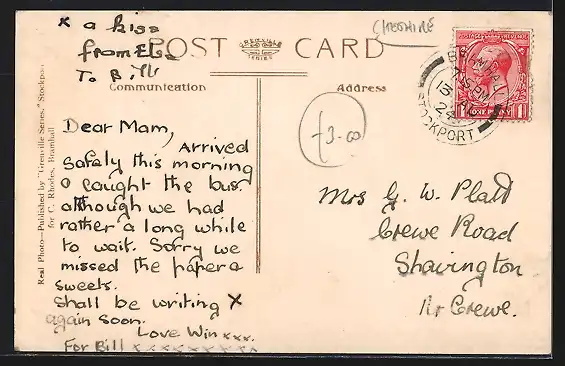 x a kiss
from
To Bill
POST CARD
GRENVILLE
SERIES
CHESHIRE
Communication
Address
POSTAGE REVENUE
ONE PENNY
BRAMHALL
7.35 PM
13 AU
24
STOCKPORT
-3-00
Real Photo—Published by "Grenville Series," Stockport
for C. Rhodes, Bramhall
Dear Mam,
Arrived
safely this morning
& caught the bus.
although we had
rather a long while
to wait. Sorry we
missed the paper &
sweets.
Shall be writing x
again soon.
Love Win xxx.
For Bill x x x x x x x x x
Mrs G. W. Platt
Crewe Road
Shavington
Nr Crewe.